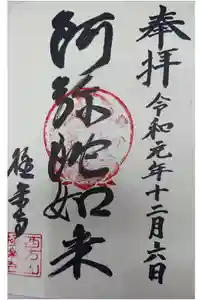 奉拝
令和元年十二月六日
阿弥陀如来
極楽寺